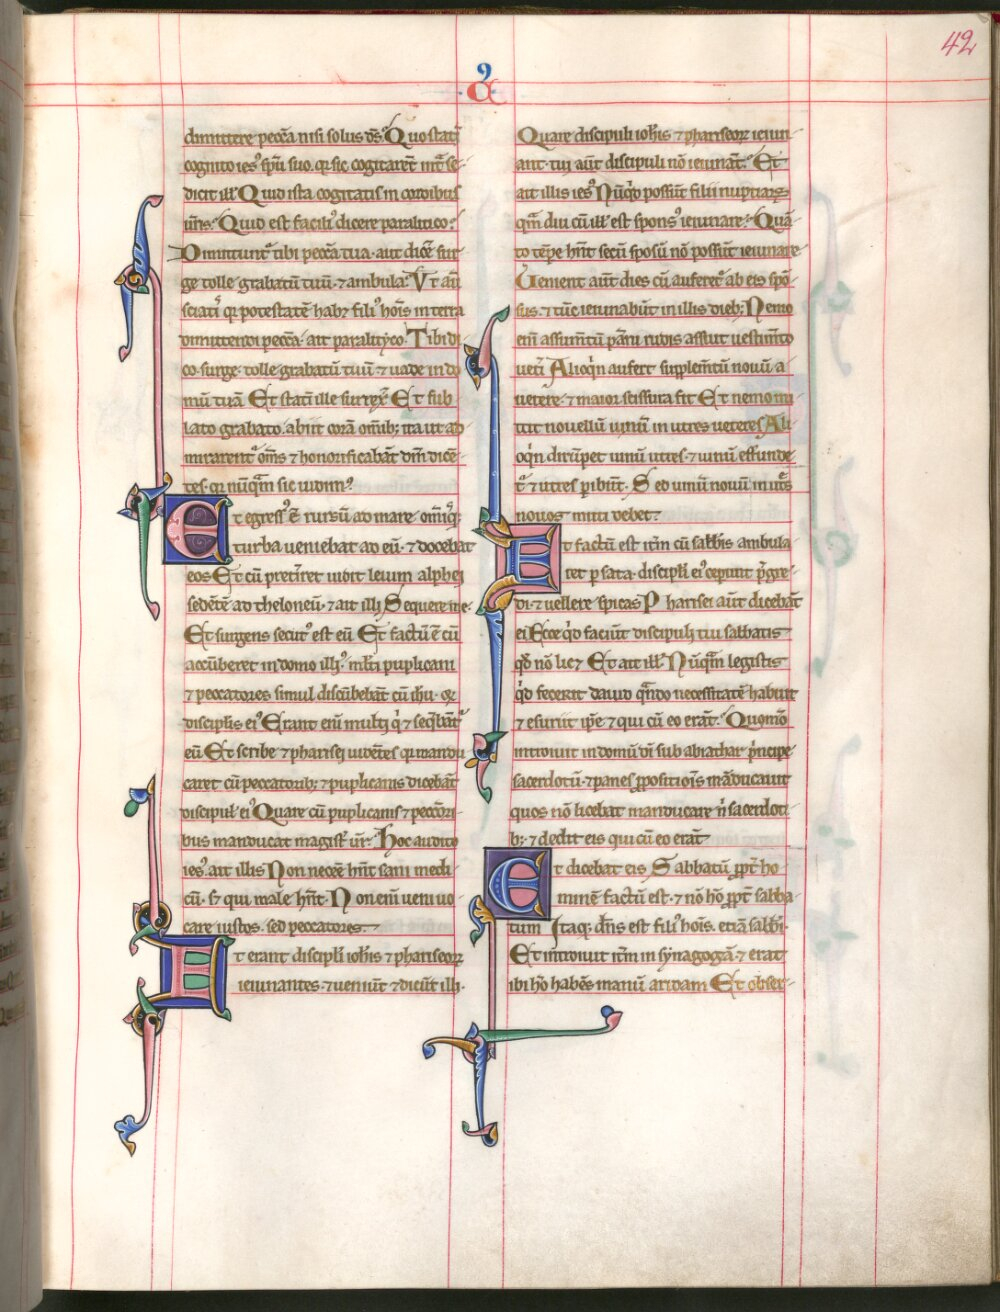 42
dimittere pecc̄a nisi solus ds̄. Quo statī
cognito ies᾽ sp̄u suo. qr sic cogitarēt int̄ se
dicit ill᾽ Quid ista cogitatis in cordibus
ur̄is᾽ Quid est facili᾽ dicere paralitico᾽
Dimittunt᾽ tibi pecc̄a tua. aut dicē sur
ge tolle grabatū tuū ⁊ ambula᾽ Vt aū
sciatī qr potestatē habꝫ fili᾽ hoīs in terra
dimittendi pecc̄a. ait paralityco᾽ Tibi di
co. surge. tolle grabatū tuū ⁊ uade in do
mū tuā Et statī ille surrex̄ Et sub
lato grabato. abiit corā om̄ibꝫ ita ut ad
mirarent᾽ om̄s ⁊ honorificabāt dm̄ dicē
tes. qr nūq̄m sic uidim᾽
t egress᾽ ē rursū ad mare. omīsqꝫ
turba ueniebat ad eū. ⁊ docebat
eos Et cū pret̄iret uidit leuium alphei
sedētē ad theloneū. ⁊ ait illi Sequere me.
Et surgens secut᾽ est eū Et factū ē cū
accūberet in domo illi᾽. ml̄ti puplicani
⁊ peccatores simul discūbebāt cū ih̄u. ⁊
discipl̄is ei᾽ Erant enī multi q̇ ⁊ seq̄bāt᾽
eū Et scribe ⁊ pharisei uidētes qr mandu
caret cū peccatoribꝫ ⁊ puplicanis dicebāt
discipul᾽ ei᾽ Quare cū puplicanis ⁊ pecc̄ori
bus manducat magist᾽ ur̄. Hoc audito
ies᾽. ait illis Non necc̄e hn̄t sani medi
cū. sꝫ qui male hn̄t. Non enī ueni uo
care iustos. sed peccatores.
t erant discipl̄i ioh̄is ⁊ phariseor̄
ieiunantes. ⁊ ueniūt ⁊ dicūt illi.
Quare discipuli ioh̄is ⁊ phariseor̄ ieiun
ant. tui aūt discipuli nō ieiunāt᾽. Et
ait illis ies᾽ Nūq̇d possūt filii nuptiar̄
qm̄ diu cū ill᾽ est spons᾽ ieiunare᾽ Quā
to tēpe hn̄t secū sposū nō possūt ieiunare
Uenient aūt dies cū auferet᾽ ab eis spō
sus. ⁊ tūc ieiunabūt in illis diebꝫ Nemo
enī assumtū pān̄i rudis assuit uestim̄to
ueti᾽ Alioq̇n aufert supplem̄tū nouū. a
uetere. ⁊ maior scissura fit Et nemo mi
tit nouellū uinū in utres ueteres Ali
oq̇n dirūpet uinū utres. ⁊ uinū effunde
t᾽ ⁊ utres pibūt. Sed uinū nouū in utr̄s
nouos mitti debet᾽
t factū est itm̄ cū sabb̄is ambula
ret p sata. discipl̄i ei᾽ ceperūt p̄gre
di. ⁊ uellere spicas Pharisei aūt dicebāt
ei Ecce q̇d faciūt discipuli tui sabbatis
qd̄ nō licꝫ Et ait ill᾽ Nūq̄m legistis
q̇d fecerit dauid q̄ndo necessitatē habuit
⁊ esuriit ip̄e ⁊ qui cū eo erāt᾽. Quom̄o
introiuit in domū di᾽ sub abiathar p̄ncipe
sacerdotū. ⁊ panes p̱positiōis māducauit
quos nō licebat manducare n̄ sacerdoti
bꝫ ⁊ dedit eis qui cū eo erāt
t dicebat eis Sabbatū p̱pt̄ ho
minē factū est. ⁊ nō hō p̱pt̄ sabba
tum Itaqꝫ dn̄s est fili᾽ hoīs. etiā sabb̄i.
Et introiuit itm̄ in synagogā. ⁊ erat
ibi hō habēs manū aridam Et obser